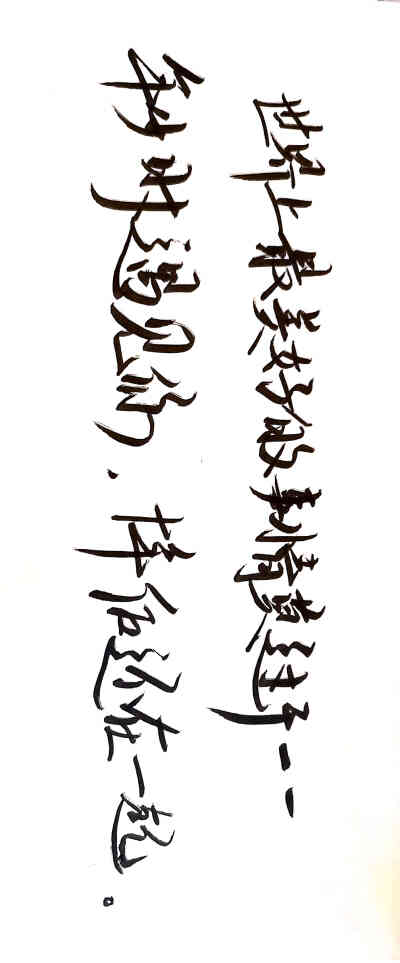 世界上最美好的事情莫过于——
和时遇见你，幸后还在一起。